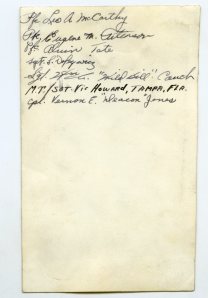 Pfc Leo A McCarthy
Pfc Eugene M. Peterson
Pfc Tate
Sgt. S.
Sgt Wm C. "Wild Bill" Couch
M.T/SGT. Vic Howard, TAMPA, FLA.
Cpl. Vernon E. "Deacon" Jones